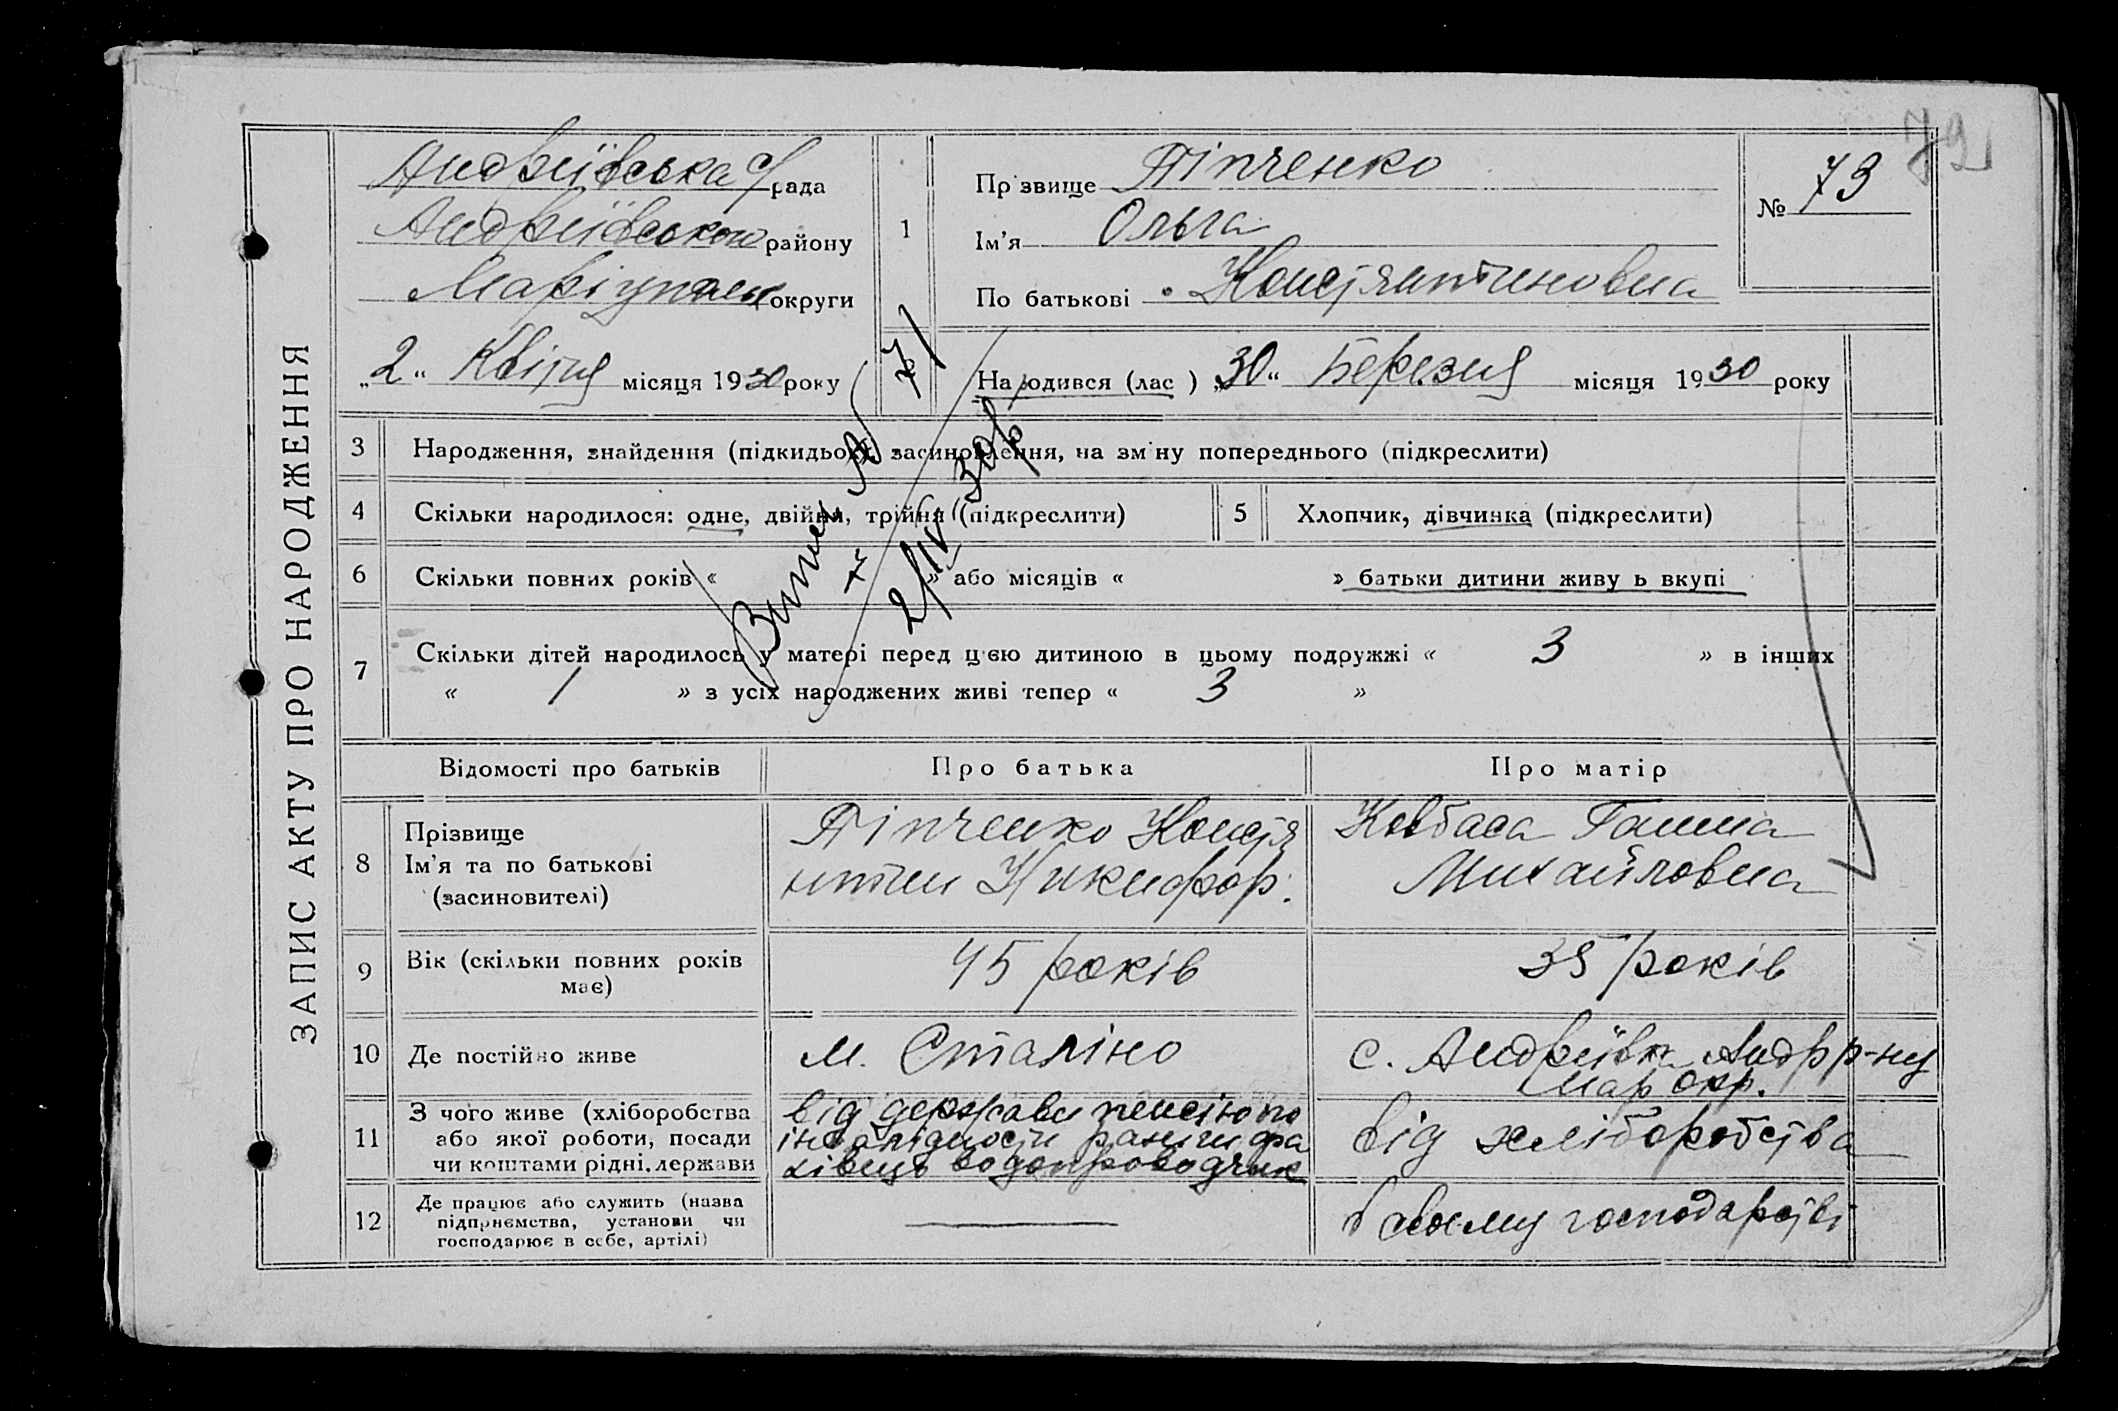 72
ЗАПИС АКТУ ПРО НАРОДЖЕННЯ
Андріївська с/рада
Андріївського району
Маріупольс округи
„2“ Квітня місяця 1930 року
1
Прізвище Піпченко
Ім'я Ольга
По батькові Констянтиновна
№ 73
Народився (лас ) „30“ Березня місяця 1930 року
Витяг № 71
2/IV 30 р
3 Народження, знайдення (підкидьок), засиновлення, на зміну попереднього (підкреслити)
4 Скільки народилося: одне, двійня, трійня (підкреслити)
5 Хлопчик, дівчинка (підкреслити)
6 Скільки повних років « » або місяців « » батьки дитини живу ь вкупі
7 Скільки дітей народилось у матері перед цією дитиною в цьому подружжі « 3 » в інших
« 1 » з усіх народжених живі тепер « 3 »
Відомості про батьків
Про батька
Про матір
8 Прізвище
Ім'я та по батькові
(засиновителі)
Піпченко Констя
нтин Никифор.
Ковбаса Ганна
Михайловна
9 Вік (скільки повних років
має)
45 років
35 років
10 Де постійно живе
м. Сталіно
с. Андріївк Андр р-ну
Мар окр.
11 З чого живе (хліборобства
або якої роботи, посади
чи коштами рідні, держави
від держави пенсію по
інвалідности раниш фа
хівець водопроводчик
від хліборобства
12 Де працює або служить (назва
підприємства, установи чи
господарює в себе, артілі)
в своєму господарстві